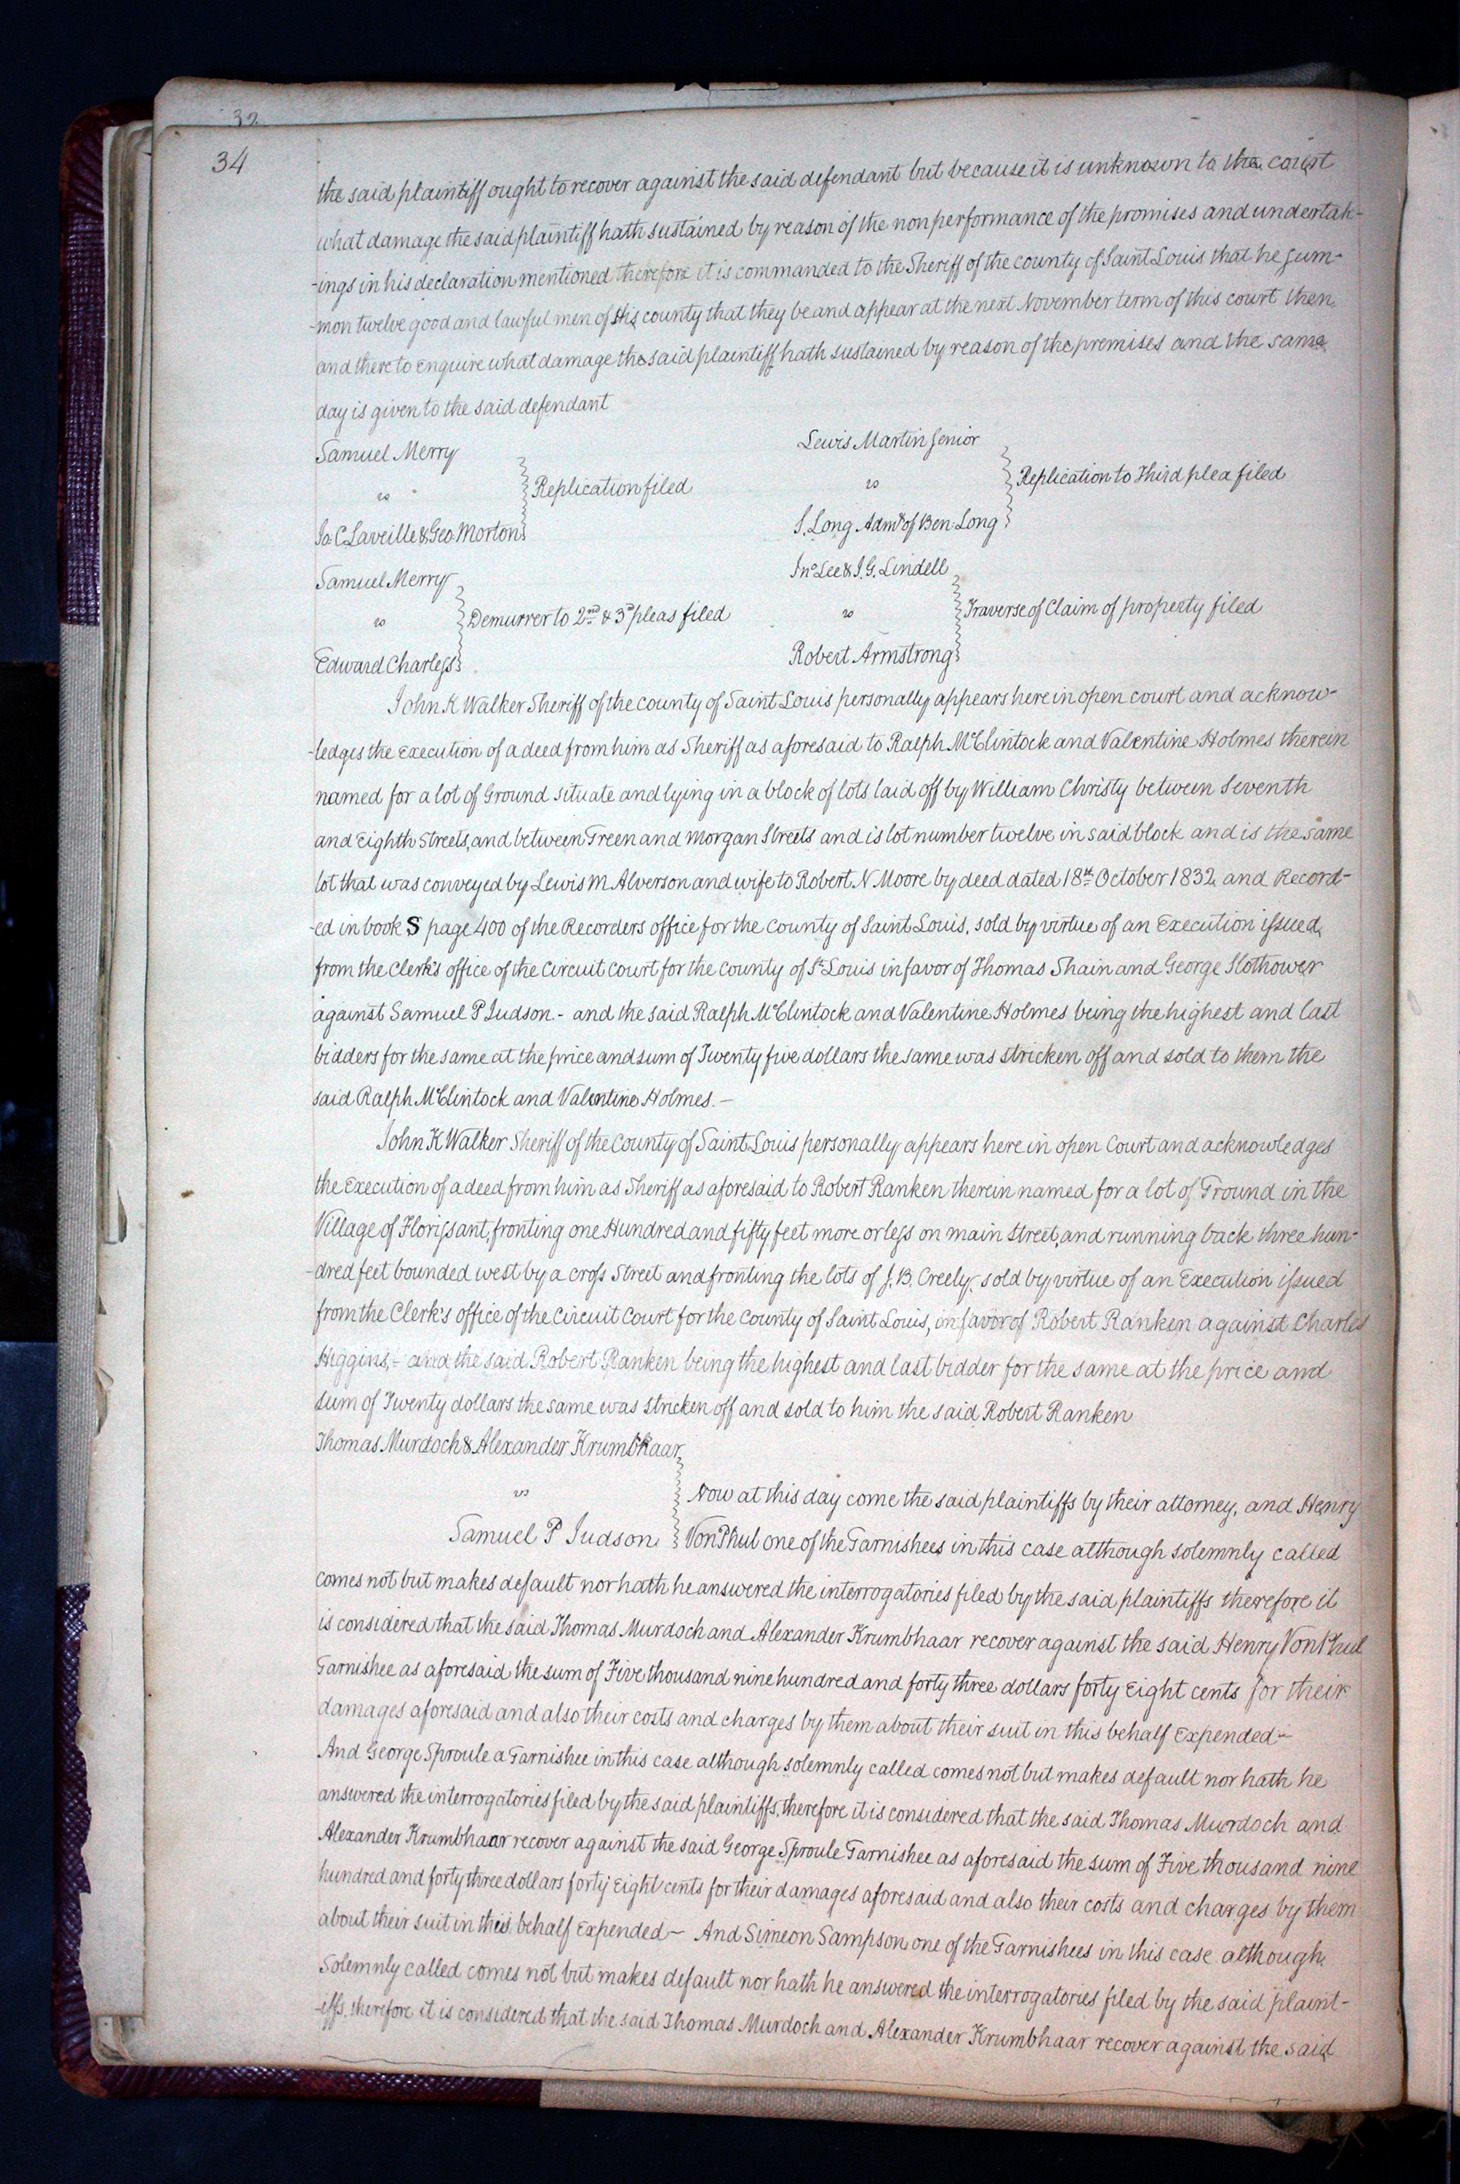 32
34
the said plaintiff ought to recover against the said defendant but because it is unknown to the court
what damage the said plaintiff hath sustained by reason of the nonperformance of the promises and undertak-
-ings in his declaration mentioned therefore it is commanded to the Sheriff of the county of Saint Louis that he sum-
-mon twelve good and lawful men of His county that they be and appear at the next November term of this court then
and there to enquire what damage the said plaintiff hath sustained by reason of the premises and the same
day is given to the said defendant
Samuel Merry
vs
Replication filed
Jo. C. Laveille & Geo. Morton
Lewis Martin Senior
vs
Replication to Third plea filed
S. Long Admr of Ben. Long
Samuel Merry
vs
Demurrer to 2nd & 3rd pleas filed
Edward Charless
Jno Lee & J. G. Lindell
vs
Traverse of Claim of property filed
Robert Armstrong
John K Walker Sheriff of the county of Saint Louis personally appears here in open court and acknow-
-ledges the Execution of a deed from him as Sheriff as aforesaid to Ralph McClintock and Valentine Holmes therein
named for a lot of Ground situate and lying in a block of lots laid off by William Christy between Seventh
and Eighth Streets, and between Green and Morgan Streets and is lot number twelve in said block and is the same
lot that was conveyed by Lewis M Alverson and wife to Robert N Moore by deed dated 18th October 1832, and Record-
-ed in book S page 400 of the Recorders office for the County of Saint Louis, sold by virtue of an Execution issued
from the Clerk's office of the Circuit Court for the County of St Louis in favor of Thomas Shain and George Slothower
against Samuel P Judson - and the said Ralph McClintock and Valentine Holmes being the highest and last
bidders for the same at the price and sum of Twenty five dollars the same was stricken off and sold to them the
said Ralph McClintock and Valentine Holmes. -
John K Walker Sheriff of the County of Saint Louis personally appears here in open Court and acknowledges
the Execution of a deed from him as Sheriff as aforesaid to Robert Ranken therein named for a lot of Ground in the
Village of Florissant, fronting one Hundred and fifty feet more or less on main Street, and running back three hun-
-dred feet bounded west by a cross Street and fronting the lots of J. B. Creely. sold by virtue of an Execution issued
from the Clerk's office of the Circuit Court for the County of Saint Louis, in favor of Robert Ranken against Charles
Higgins, - and the said Robert Ranken being the highest and last bidder for the same at the price and
sum of Twenty dollars the same was stricken off and sold to him the said Robert Ranken
Thomas Murdoch & Alexander Krumbhaar
vs
Samuel P Judson
Now at this day come the said plaintiffs by their attorney, and Henry
Von Phul one of the Garnishees in this case although solemnly called
comes not but makes default nor hath he answered the interrogatories filed by the said plaintiffs therefore it
is considered that the said Thomas Murdoch and Alexander Krumbhaar recover against the said Henry Von Phul
Garnishee as aforesaid the sum of Five thousand nine hundred and forty three dollars forty Eight cents for their
damages aforesaid and also their costs and charges by them about their suit in this behalf Expended -
And George Sproule a Garnishee in this case although solemnly called comes not but makes default nor hath he
answered the interrogatories filed by the said plaintiffs, therefore it is considered that the said Thomas Murdoch and
Alexander Krumbhaar recover against the said George Sproule Garnishee as aforesaid the sum of Five thousand nine
hundred and forty three dollars forty Eight cents for their damages aforesaid and also their costs and charges by them
about their suit in this behalf Expended - And Simeon Sampson one of the Garnishees in this case although
Solemnly called comes not but makes default nor hath he answered the interrogatories filed by the said plaint-
-iffs, therefore it is considered that the said Thomas Murdoch and Alexander Krumbhaar recover against the said